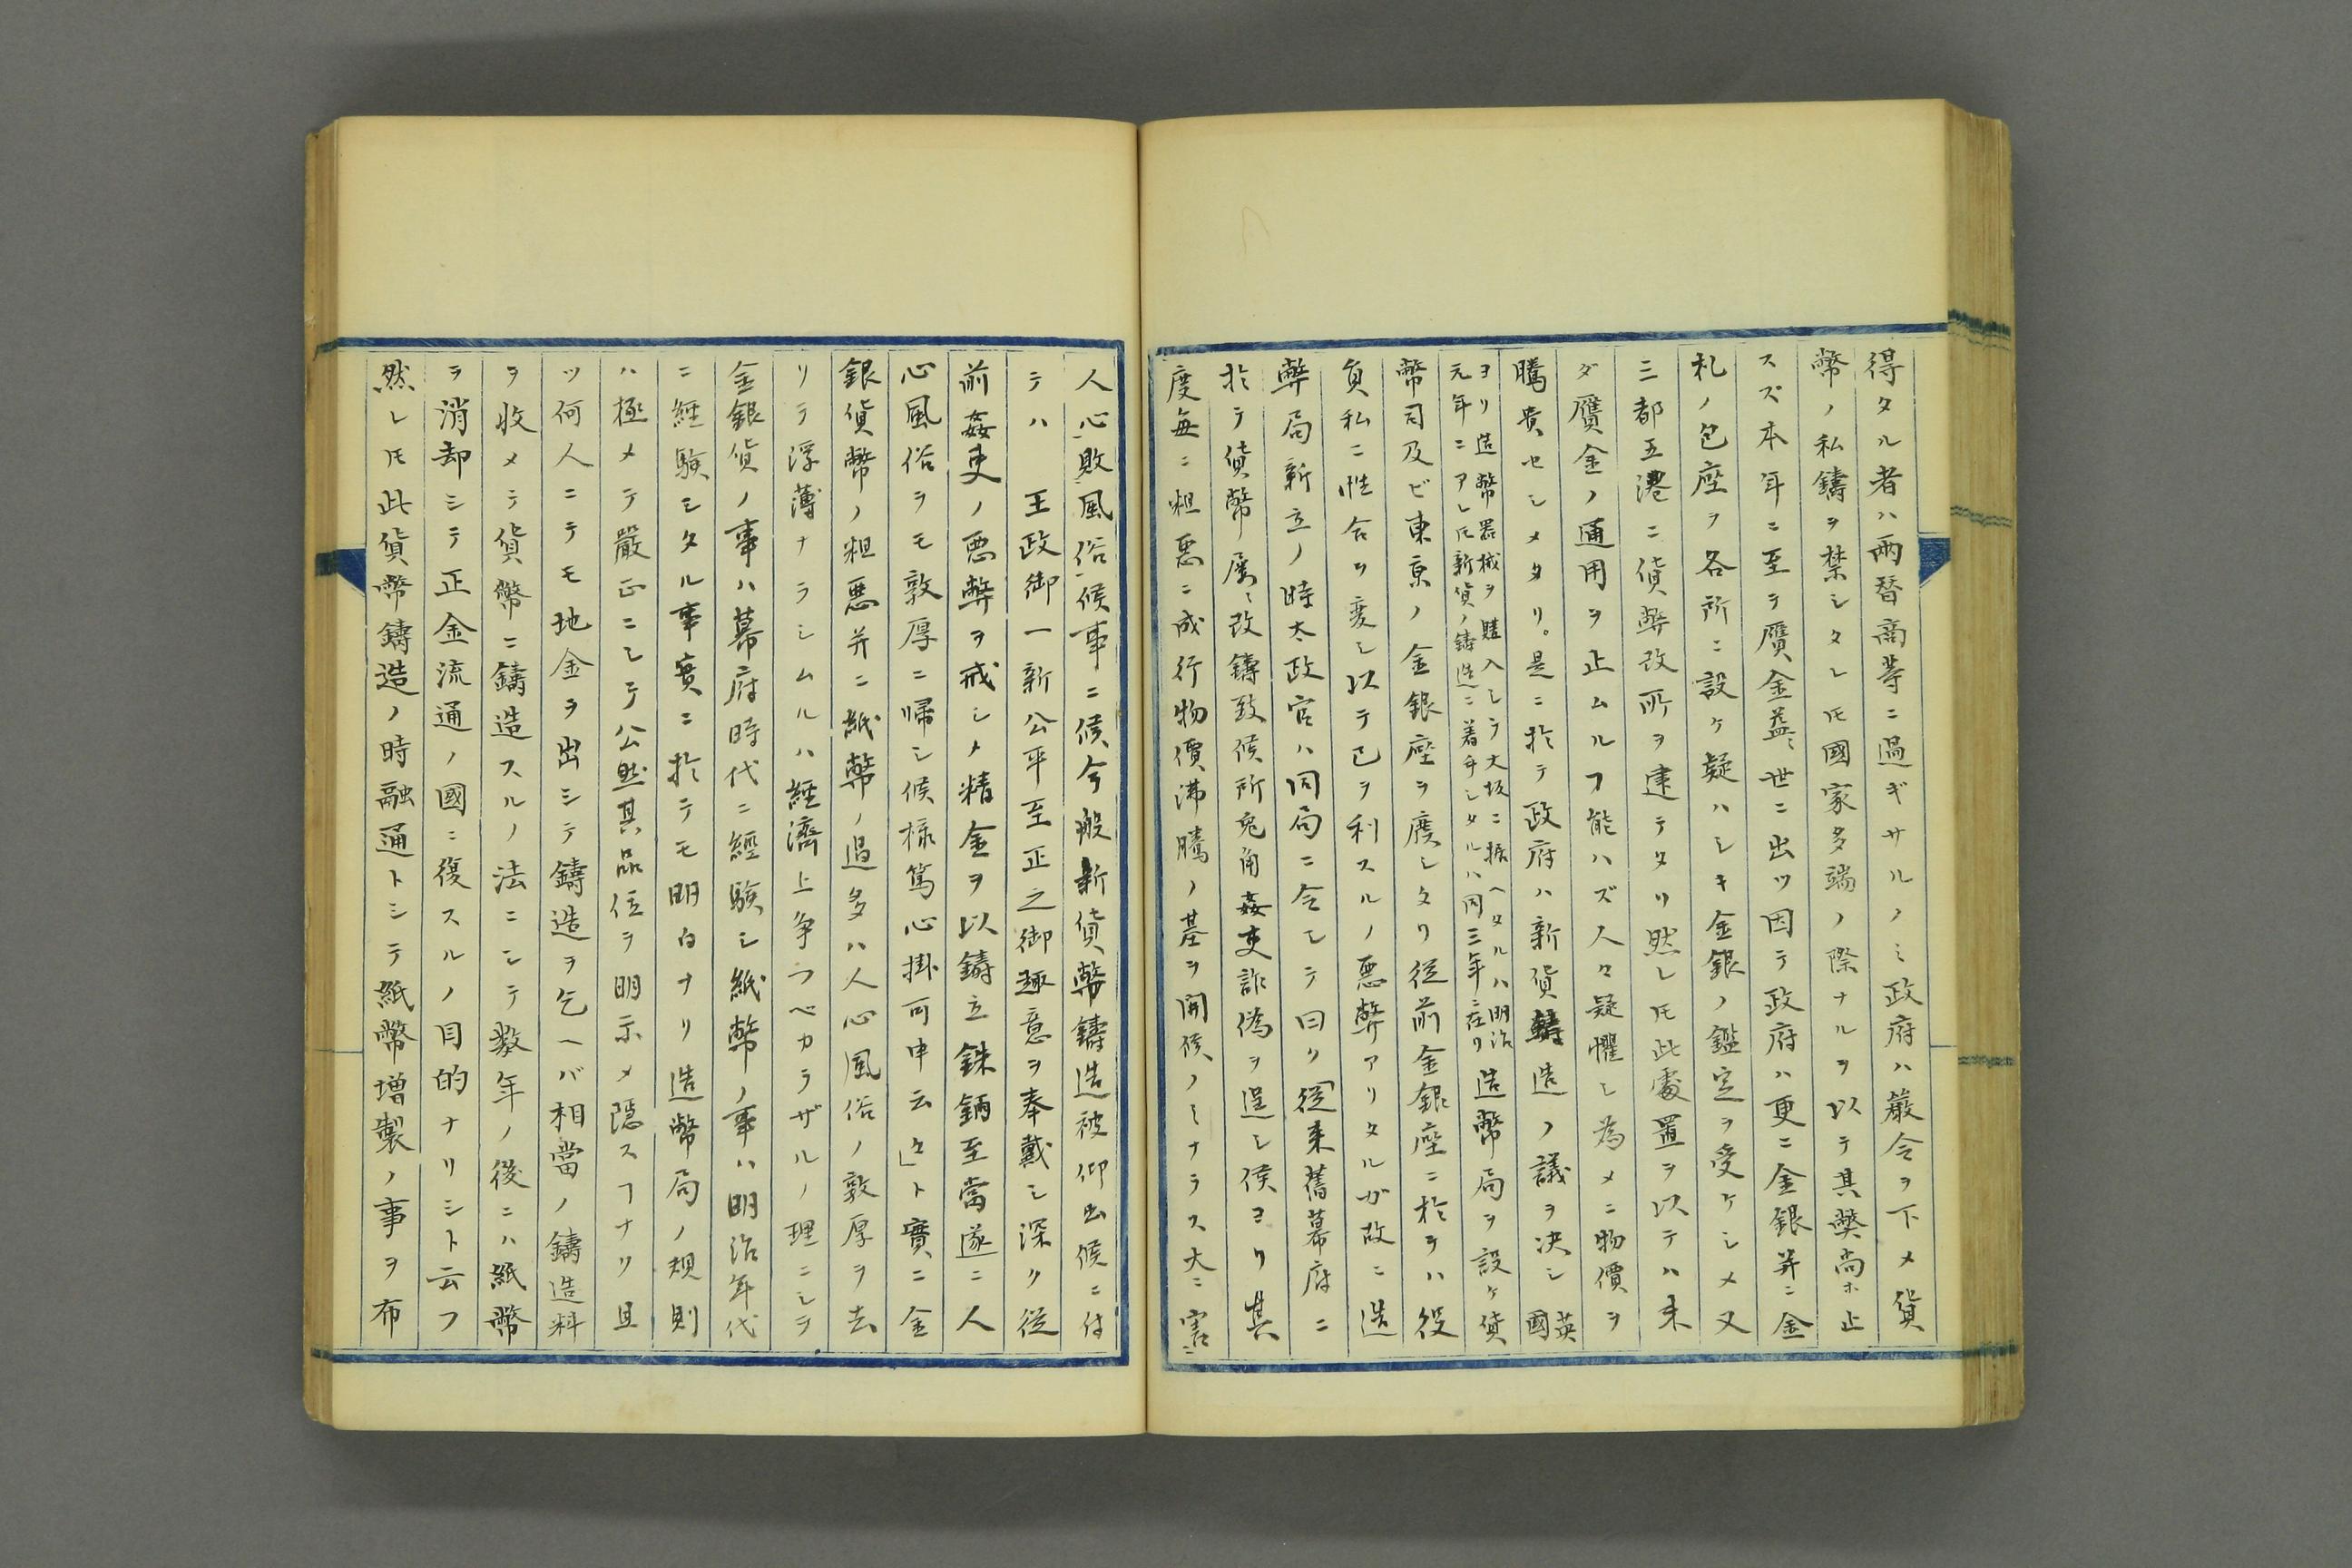 得タル者ハ兩替商等ニ過ギサルノミ政府ハ嚴令ヲ下メ貨
幣ノ私鑄ヲ禁シタレ𪜈國家多端ノ際ナルヲ以テ其獘尚ホ止
スズ本年ニ至テ贋金益〻世ニ出ツ因テ政府ハ更ニ金銀并ニ金
札ノ包座ヲ各所ニ設ケ疑ハシキ金銀ノ鑑定ヲ受ケシメ又
三都五港ニ貨幣改所ヲ建テタリ然レ𪜈此處置ヲ以テハ未
ダ贋金ノ通用ヲ止ムルヿ能ハズ人々疑懼シ為メニ物價ヲ
騰貴セシメタリ。是ニ於テ政府ハ新貨鑄造ノ議ヲ決シ英國
ヨリ造幣器械ヲ購入シテ大坂ニ据ヘタルハ明治
元年ニアレ𪜈新貨ノ鑄造ニ着手シタルハ同三年ニ在リ造幣局ヲ設ケ貨
幣司及ビ東京ノ金銀座ヲ廢シタリ從前金銀座ニ於テハ役
負私ニ性合ヲ変シ以テ己ヲ利スルノ悪弊アリタルガ故ニ造
幣局新立ノ時太政官ハ同局ニ令シテ曰ク「從來舊幕府ニ
於テ貨幣屡〻改鑄致候所兎角姦吏詐偽ヲ逞シ候ヨリ其
度毎ニ粗悪ニ成行物價沸騰ノ基ヲ開候ノミナラス大ニ害ニ
人心敗風俗候事ニ候今般新貨幣鑄造被仰出候ニ付
テハ 王政御一新公平至正之御趣意ヲ奉戴シ深ク從
前姦吏ノ悪弊ヲ戒シメ精金ヲ以鑄立銖鋼至當遂ニ人
心風俗ヲモ敦厚ニ帰シ候様篤心掛可申云々」ト實ニ金
銀貨幣ノ粗悪并ニ紙幣ノ過多ハ人心風俗ノ敦厚ヲ去
リテ浮薄ナラシムルハ經濟上争フベカラザルノ理ニシテ
金銀貨ノ事ハ幕府時代ニ經験シ紙幣ノ事ハ明治年代
ニ經験シタル事實ニ於テモ明白ナリ造幣局ノ規則
ハ極メテ嚴正ニシテ公然其品位ヲ明示メ隠スヿナリ且
ツ何人ニテモ地金ヲ出シテ鑄造ヲ乞ヘバ相當ノ鑄造料
ヲ收メテ貨幣ニ鑄造スルノ法ニシテ数年ノ後ニハ紙幣
ヲ消却シテ正金流通ノ國ニ復スルノ目的ナリシト云フ
然レ𪜈此貨幣鑄造ノ時融通トシテ紙幣増製ノ事ヲ布